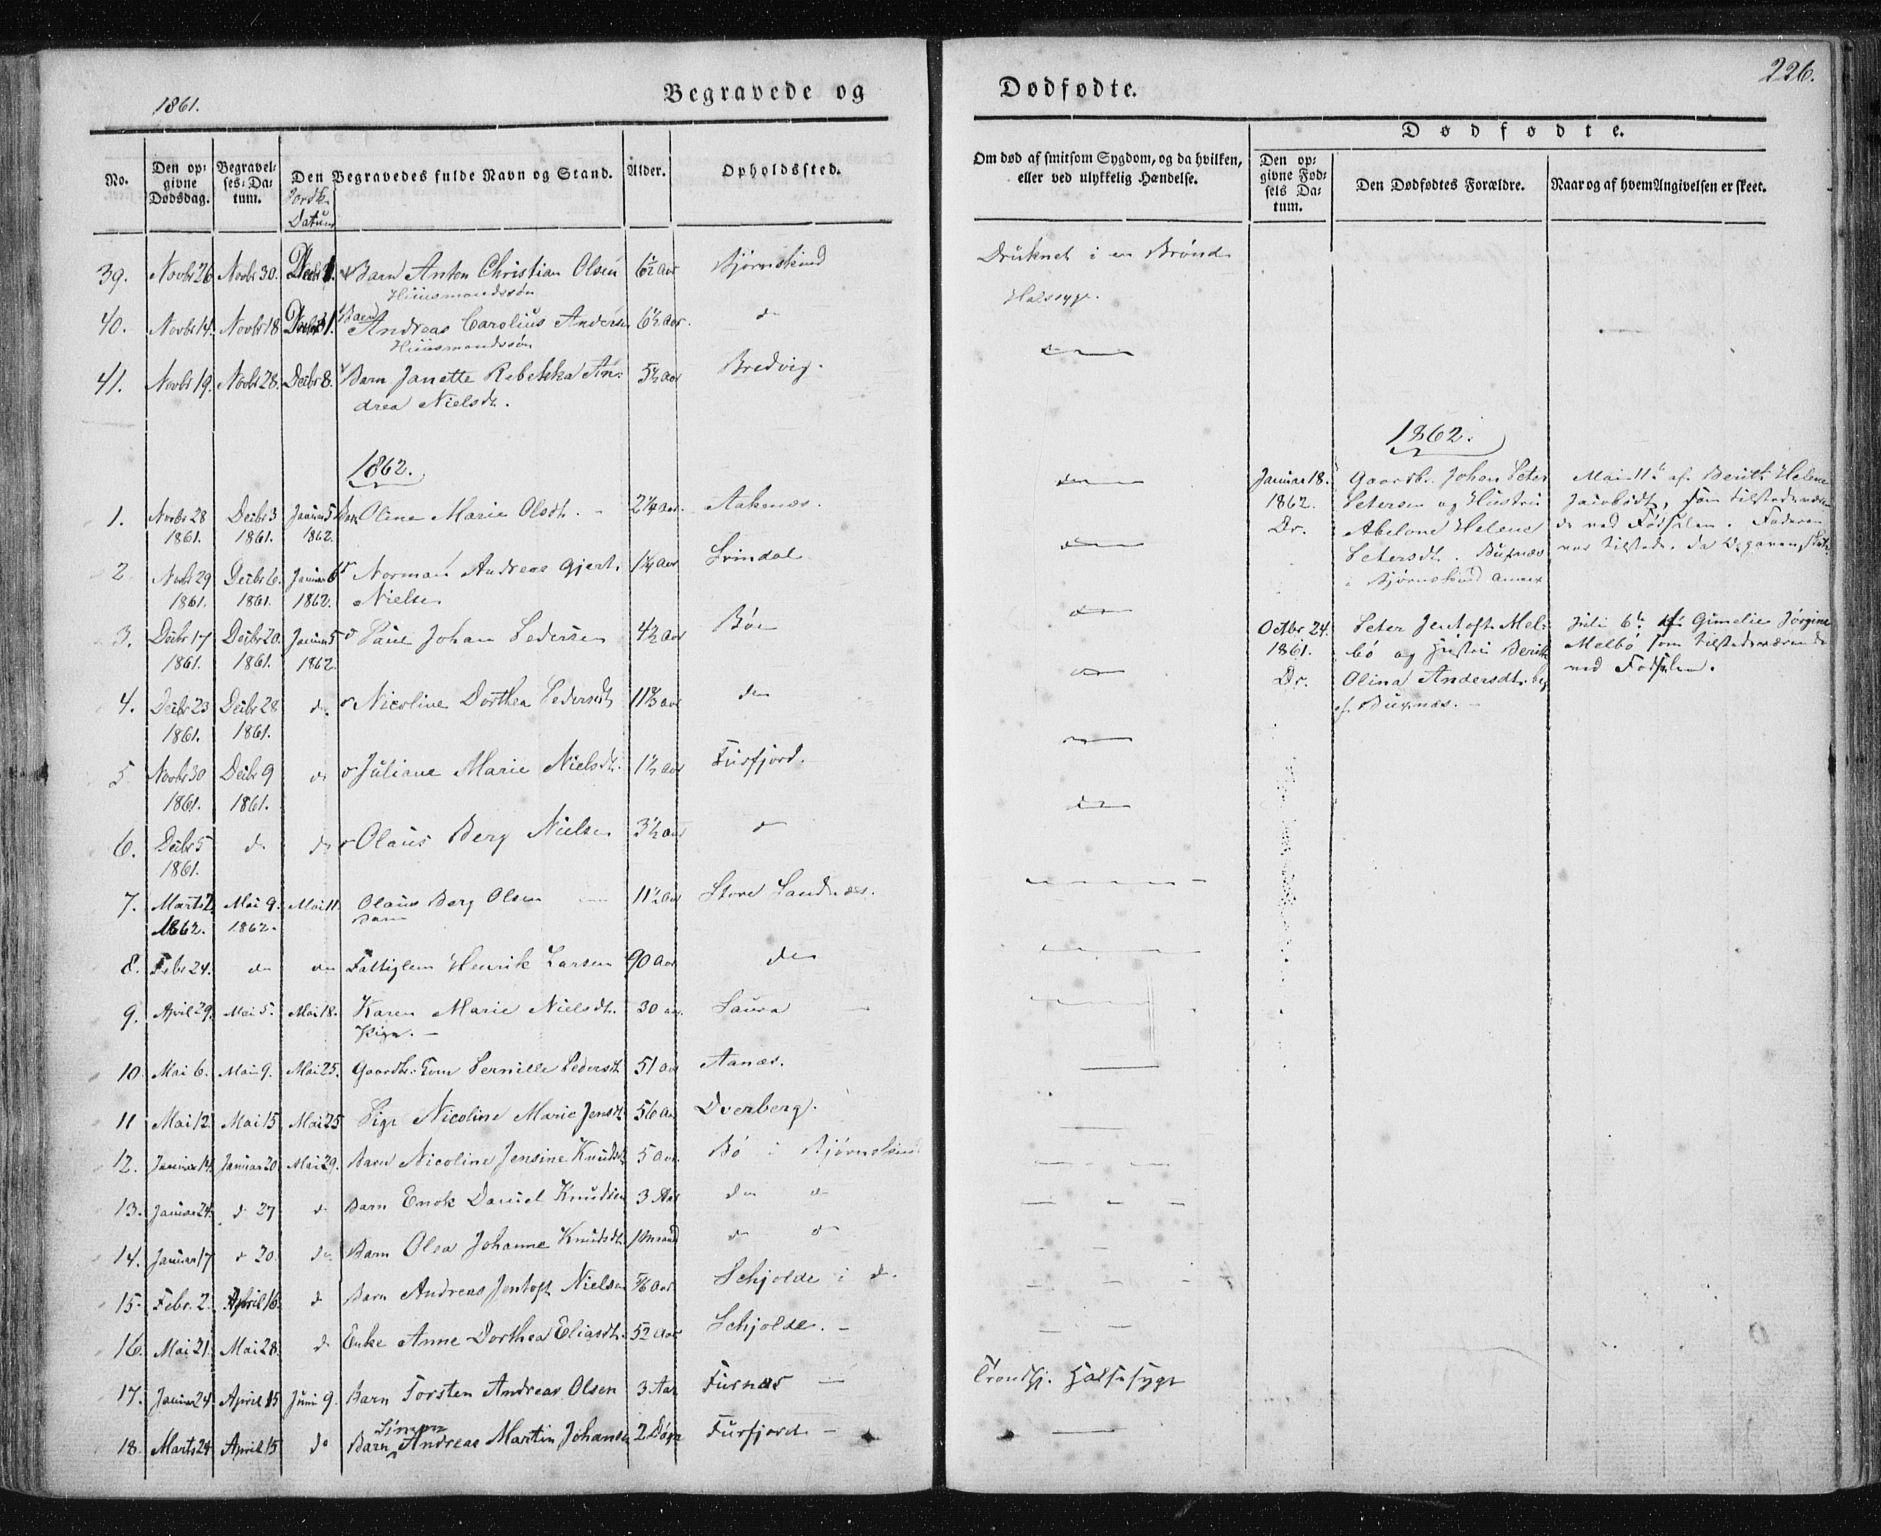 1861.
Begravede og
Dødfødte.
226.
No.
Den op-
givne
Dødsdag.
Begravel-
ses-Da-
tum.
Jordk.
Datum
Den Begravedes fulde Navn og Stand.
Alder.
Opholdssted.
Om død af smitsom Sygdom, og da hvilken,
eller ved ulykkelig Hændelse.
Dødfødte.
Den op-
givne Fød-
sels Da-
tum.
Den Dødfødtes Forældre.
Naar og af hvem Angivelsen er skeet.
39. Novbr 26 Novbr 30. Barn Anton Christian Olsen 6½ Aar Bjørnskind Druknet i en Brønd
Huusmandssøn
Halssyge.
40. Novbr 14. Novbr 18 Barn Andreas Carolius Andersen 6½ Aar. do
Huusmandssøn
41. Novbr 19. Novbr 28. Decbr 8. Barn Janette Rebekka An-
drea Nielsdt. 5½ Aar Bredvig.
1862.
1. Novbr 28 Decbr 3 Januar 5 Barn Oline Marie Olsdt. 2¼ Aar. Aaknæs.
1861. 1861. 1862.
2 Novbr 29 Decbr 6. Januar 6 Norman Andreas Gjert 1¼ Aar Svindal
1861. 1861. 1862. Nielsen
3. Decbr 17 Decbr 20 Januar 5 Paul Johan Pedersen 4½ Aar Bøe
1861. 1861. 1862.
4. Decbr 23 Decbr 28 do Nicoline Dorthea Pedersdt 11 Aar do
1861. 1861.
5 Novbr 30 Decbr 9 do Juliane Marie Nielsdt. 1½ Aar Fusfjord.
1861. 1861.
6. Decbr 5 do do Olaus Berg Nielsen 3½ Aar do
1861.
7. Marts 2 Mai 9. Mai 11. Olaus Berg Olsen 11½ Aar Store Sandnæs.
1862. 1862. Barn
8. Febr 24. do do Fattiglem Henrik Larsen 90 Aar do
9. April 29. Mai 5. Mai 18. Karen Marie Nielsdt. 30 Aar Saura
Pige.
10. Mai 6. Mai 9. Mai 25. Gaardbr. Kone Pernille Pedersdt 51 Aar Aanæs.
11 Mai 12. Mai 15 Mai 25 Pige Nicoline Marie Jensdt 56 Aar Dverberg.
12. Januar 14. Januar 20 Mai 29. Barn Nicoline Jensine Knudsdt 5 Aar. Bø i Bjørnskind
13. Januar 24. do 27 do Barn Enok Daniel Knudsen 3 Aar do do
14. Januar 17 do 20. do Barn Olea Johanne Knudsdt. 1 Maaned do do
15. Febr. 2. April 16. do Barn Andreas Jentoft Nielsen 5/6 Aar Schjolde i do
16. Mai 21. Mai 28. do Enke Anne Dorthea Eliasdt. 52 Aar Schjolde.
17. Januar 24. April 15 Juni 9. Barn Torsten Andreas Olsen 3 Aar Fusnæs Trondhj. Halssyge
Simon
18. Marts 28 April 15 do Barn Andreas Martin Johansen 2 Døgn Fusfjord
1862.
Januar 18. Gaardbr. Johan Peter Mai 11te af Berith Helene
1862. Petersen og Hustru Jacobsdt, som tilstedeværen-
Dv. Abelone Helene de ved Fødselen. Faderen
Petersdt. Buxnæs var tilstede, da Opgaven skete.
i Bjørnskind Annex
Octbr 24. Peter Jentoft Mel- Juli 6te af Gimelie Jørgine
1861. bö og Hustru Berith Melbö som tilstedeværende
Dv. Olina Andersdt. ved Fødselen.
af Buxnæs.